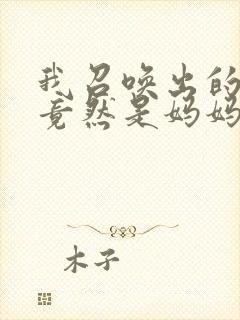 我召唤出的
竟然是妈妈
木子